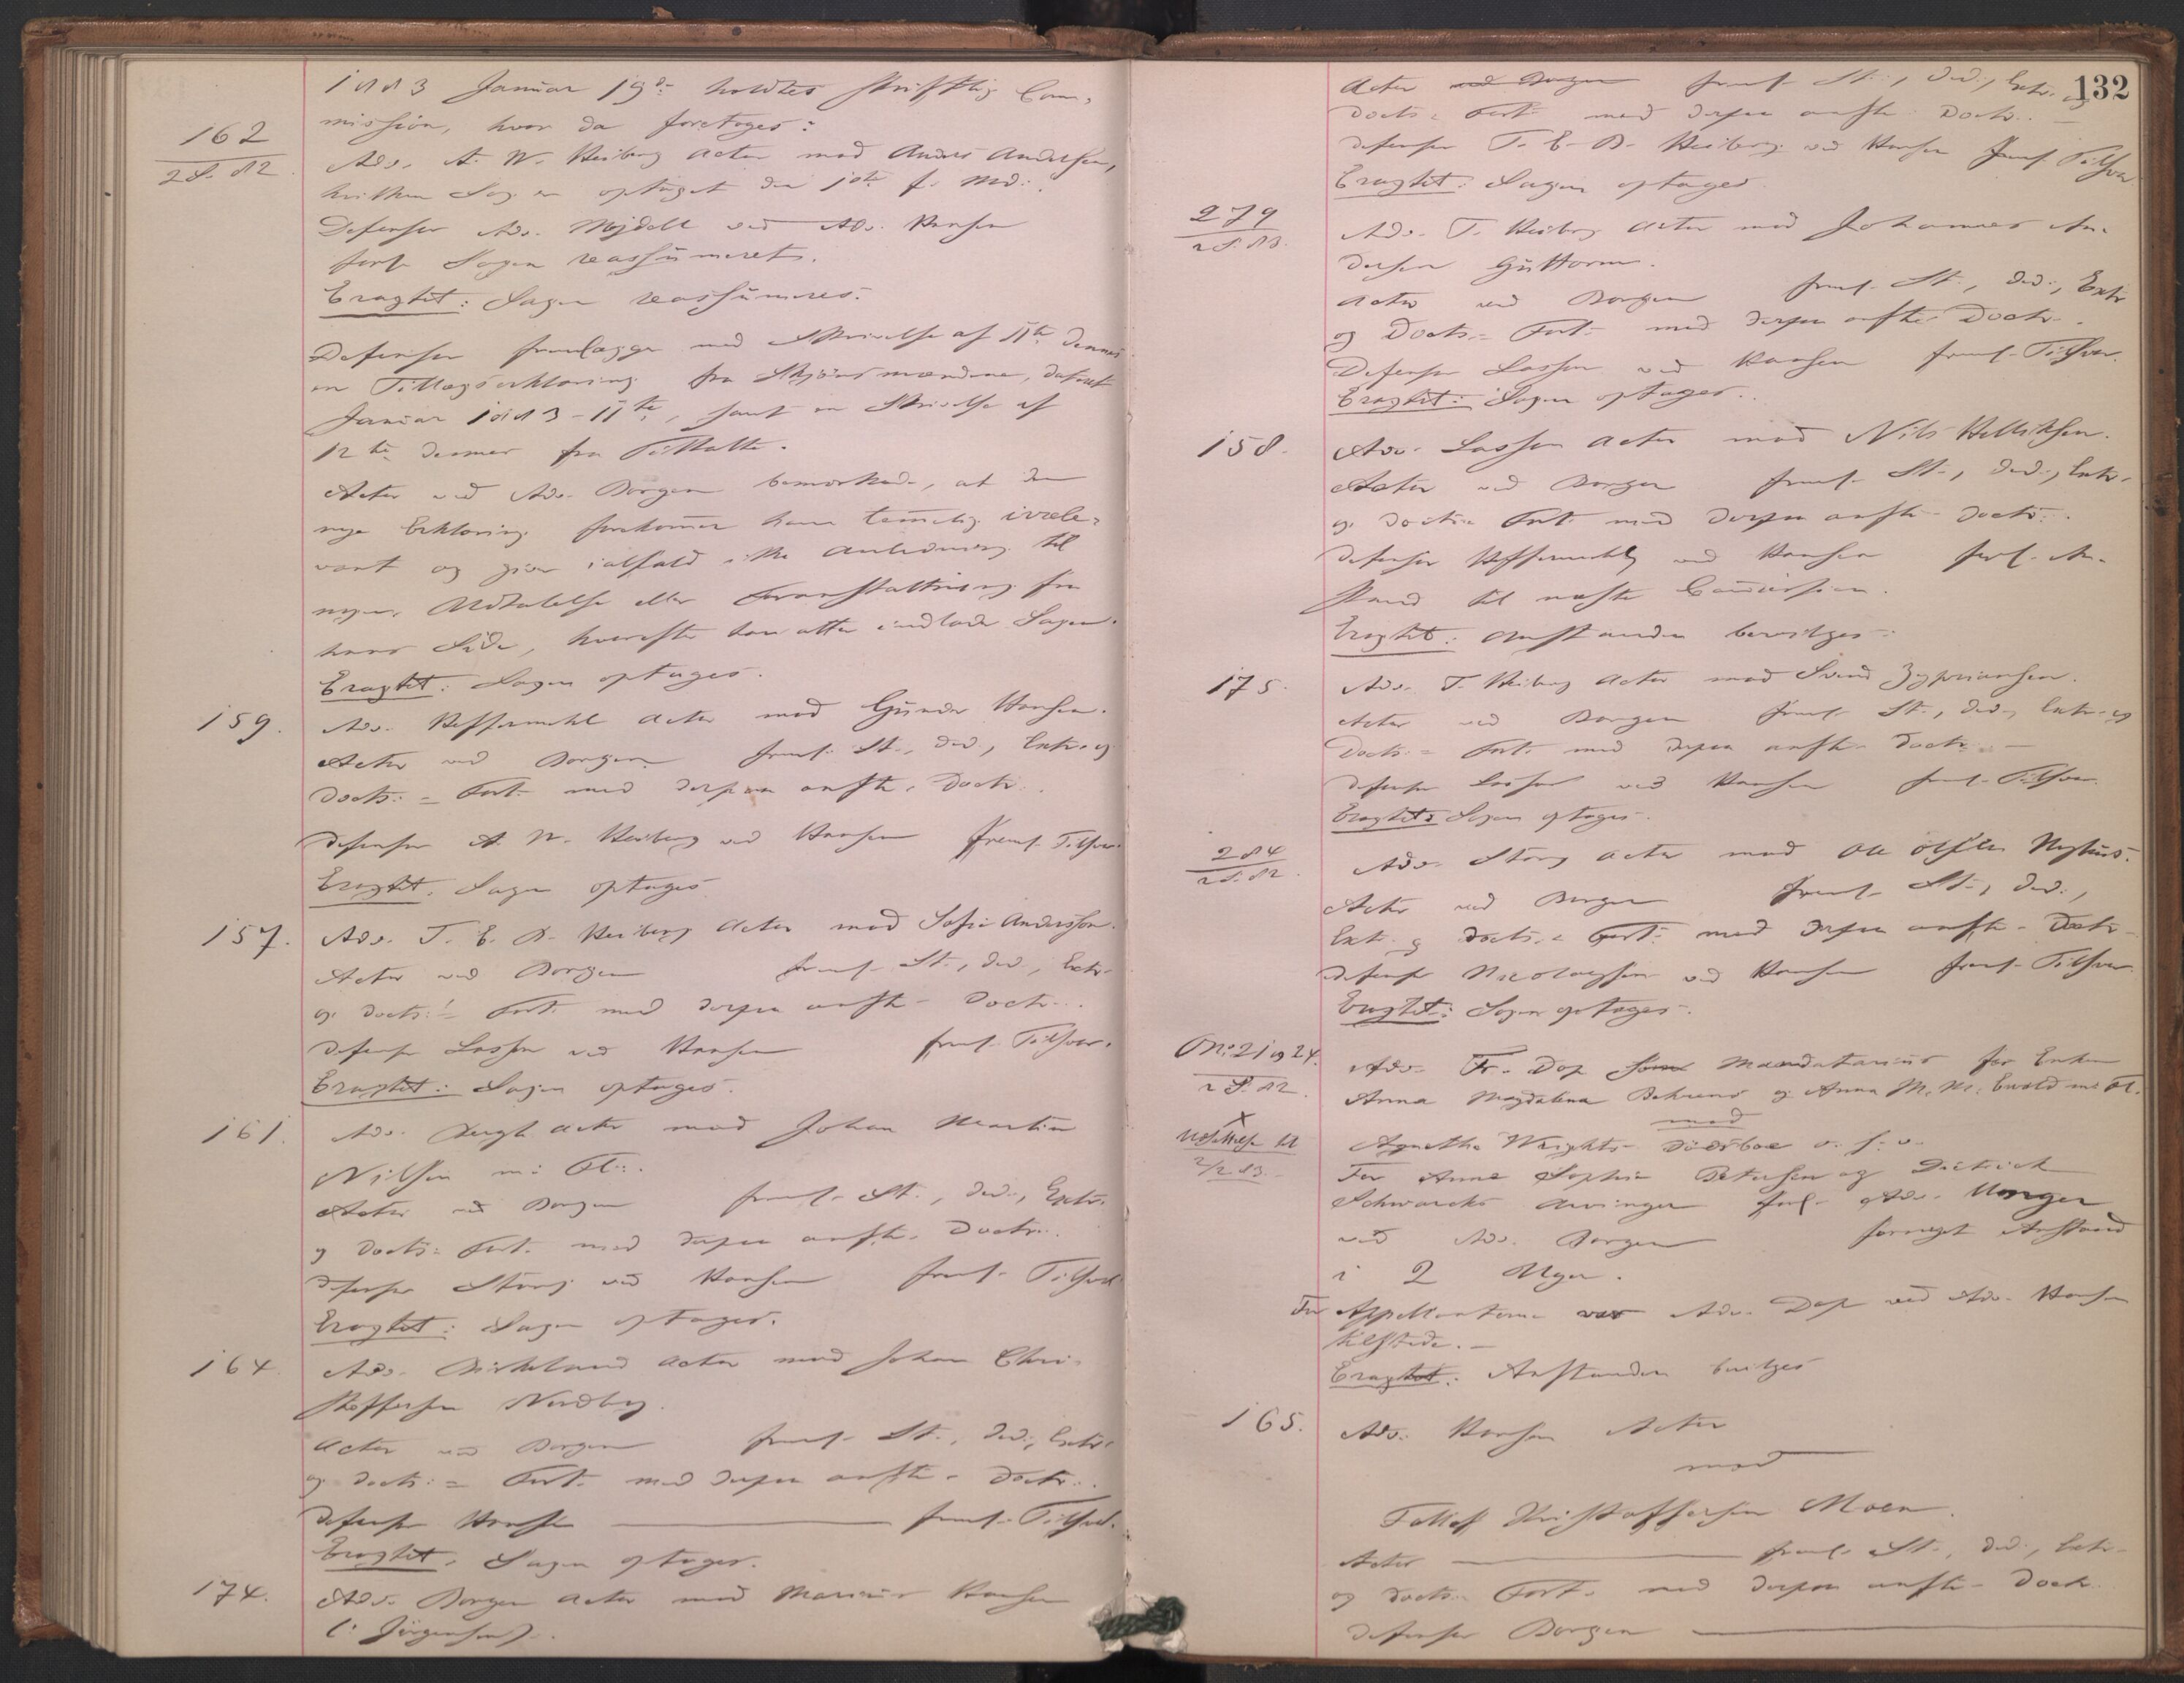 1883 Januar 19de holdtes skriftlig Com-
mission, hvor da foretoges:
162
2 S. 82.
Adv. A. W. Heiberg Actor mod Anders Andersen,
hvilken Sag er optaget den 10de f. Md.
Defensor Adv. Mejdell ved Adv. Hansen
forl. Sagen reassümeret.
Eragtet: Sagen reassümeres.
Defensor fremlægger med Skrivelse af 11te dennes
en Tillægserklæring fra Skjönsmændene, dateret
Januar 1883-11te, samt en Skrivelse af
12te dennes fra Tiltalte.
Actor ved Adv. Borgen bemærkede, at den
nye Erklæring forekommer ham temmelig irrele-
vant og giver ialfald ikke Anledning til
nogen Udtalelse eller Foranstaltning fra
hans Side, hvorefter han atter indlader Sagen.
Eragtet: Sagen optages.
159.
Adv. Heffermehl Actor mod Gunder Hansen.
Actor ved Borgen freml. St., Ded., Extr. og
Docts.= Fort. med derpaa anfte. Doctr.
Defensor A. W. Heiberg ved Hansen freml. Tilsvar.
Eragtet. Sagen optages
157.
Adv. T. E. B. Heiberg Actor mod Sofie Anderssen.
Actor ved Borgen freml. St., Ded., Extr.
og Docts.= Fort. med derpaa anfte. Doctr.
Defensor Lassen ved Hansen freml. Tilsvar.
Eragtet: Sagen optages.
161.
Adv. Bergh Actor mod Johan Martin
Nilsen m. Fl.
Actor ved Borgen freml. St., Ded., Extr.
og Docts= Fort. med derpaa anfte. Doctr.
Defensor Stang ved Hansen freml. Tilsvar
Eragtet: Sagen optages.
164.
Adv. Birkeland Actor mod Johan Chri-
stoffersen Nordby.
Actor ved Borgen freml. St., Ded., Extr.
og Docts.= Fort. med derpaa anfte. Doctr.
Defensor Hansen freml. Tilsvar.
Eragtet. Sagen optages.
174.
Adv. Borgen Actor mod Marius Hansen
(: Jörgensen).
132
Actor ved Borgen freml. St., Ded., Extr. og
Docts= Fort. med derpaa anfte. Doctr.
Defensor T. E. B. Heiberg ved Hansen freml. Tilsvar
Eragtet: Sagen optages
279
2 S. 83.
Adv. T. Heiberg Actor mod Johannes An-
dersen Guttorm.
Actor ved Borgen freml. St., Ded., Extr
og Docts.= Fort. med derpaa anfte. Doctr.
Defensor Lassen ved Hansen freml. Tilsvar.
Eragtet: Sagen optages.
158.
Adv. Lassen Actor mod Nils Helliksen.
Actor ved Borgen freml. St., Ded., Extr.
og Docts= Fort. med derpaa anfte. Doctr.
Defensor Heffermehl ved Hansen forl. An-
stand til næste Commission.
Eragtet: Anstanden bevilges.
175.
Adv. T. Heiberg Actor mod Svend Zypriansen.
Actor ved Borgen freml. St., Ded., Extr. og
Docts.= Fort. med derpaa anfte. Doctr.
Defensor Lassen ved Hansen freml. Tilsvar.
Eragtet: Sagen optages.
284
2 S. 82.
Adv. Stang Actor mod Ole Olsen
Actor ved Borgen freml. St., Ded.,
Extr. og Docts.= Fort. med derpaa anfte. Doctr.
Defensor Nicolaysen ved Hansen freml. Tilsvar.
Eragtet: Sagen optages.
No. 21 og 24.
2 S. 82.
X
Udsættelse til
2/2 83.
Adv. Fr. Dop som Mandatarius for Enken
Anna Magdalena Behrens og Anna M. M. Ewald m. Fl.
mod
Agnetha Wrights Dödsbo o. s. v.
For Anne Sophie Petersen og Dietrick
Schwarcks Arvinger forl. Adv. Unger
ved Adv. Borgen fornyet Anstand
i 2 Uger.
For Appellanterne var Adv. Dop ved Adv. Hansen
tilstede.
Eragtet: Anstanden bevilges
165.
Adv. Hansen Actor
mod
Tallef Kristoffersen Moen.
Actor freml. St., Ded., Extr.
og Docts. Fort. med derpaa anfte. Doctr.
Defensor Borgen